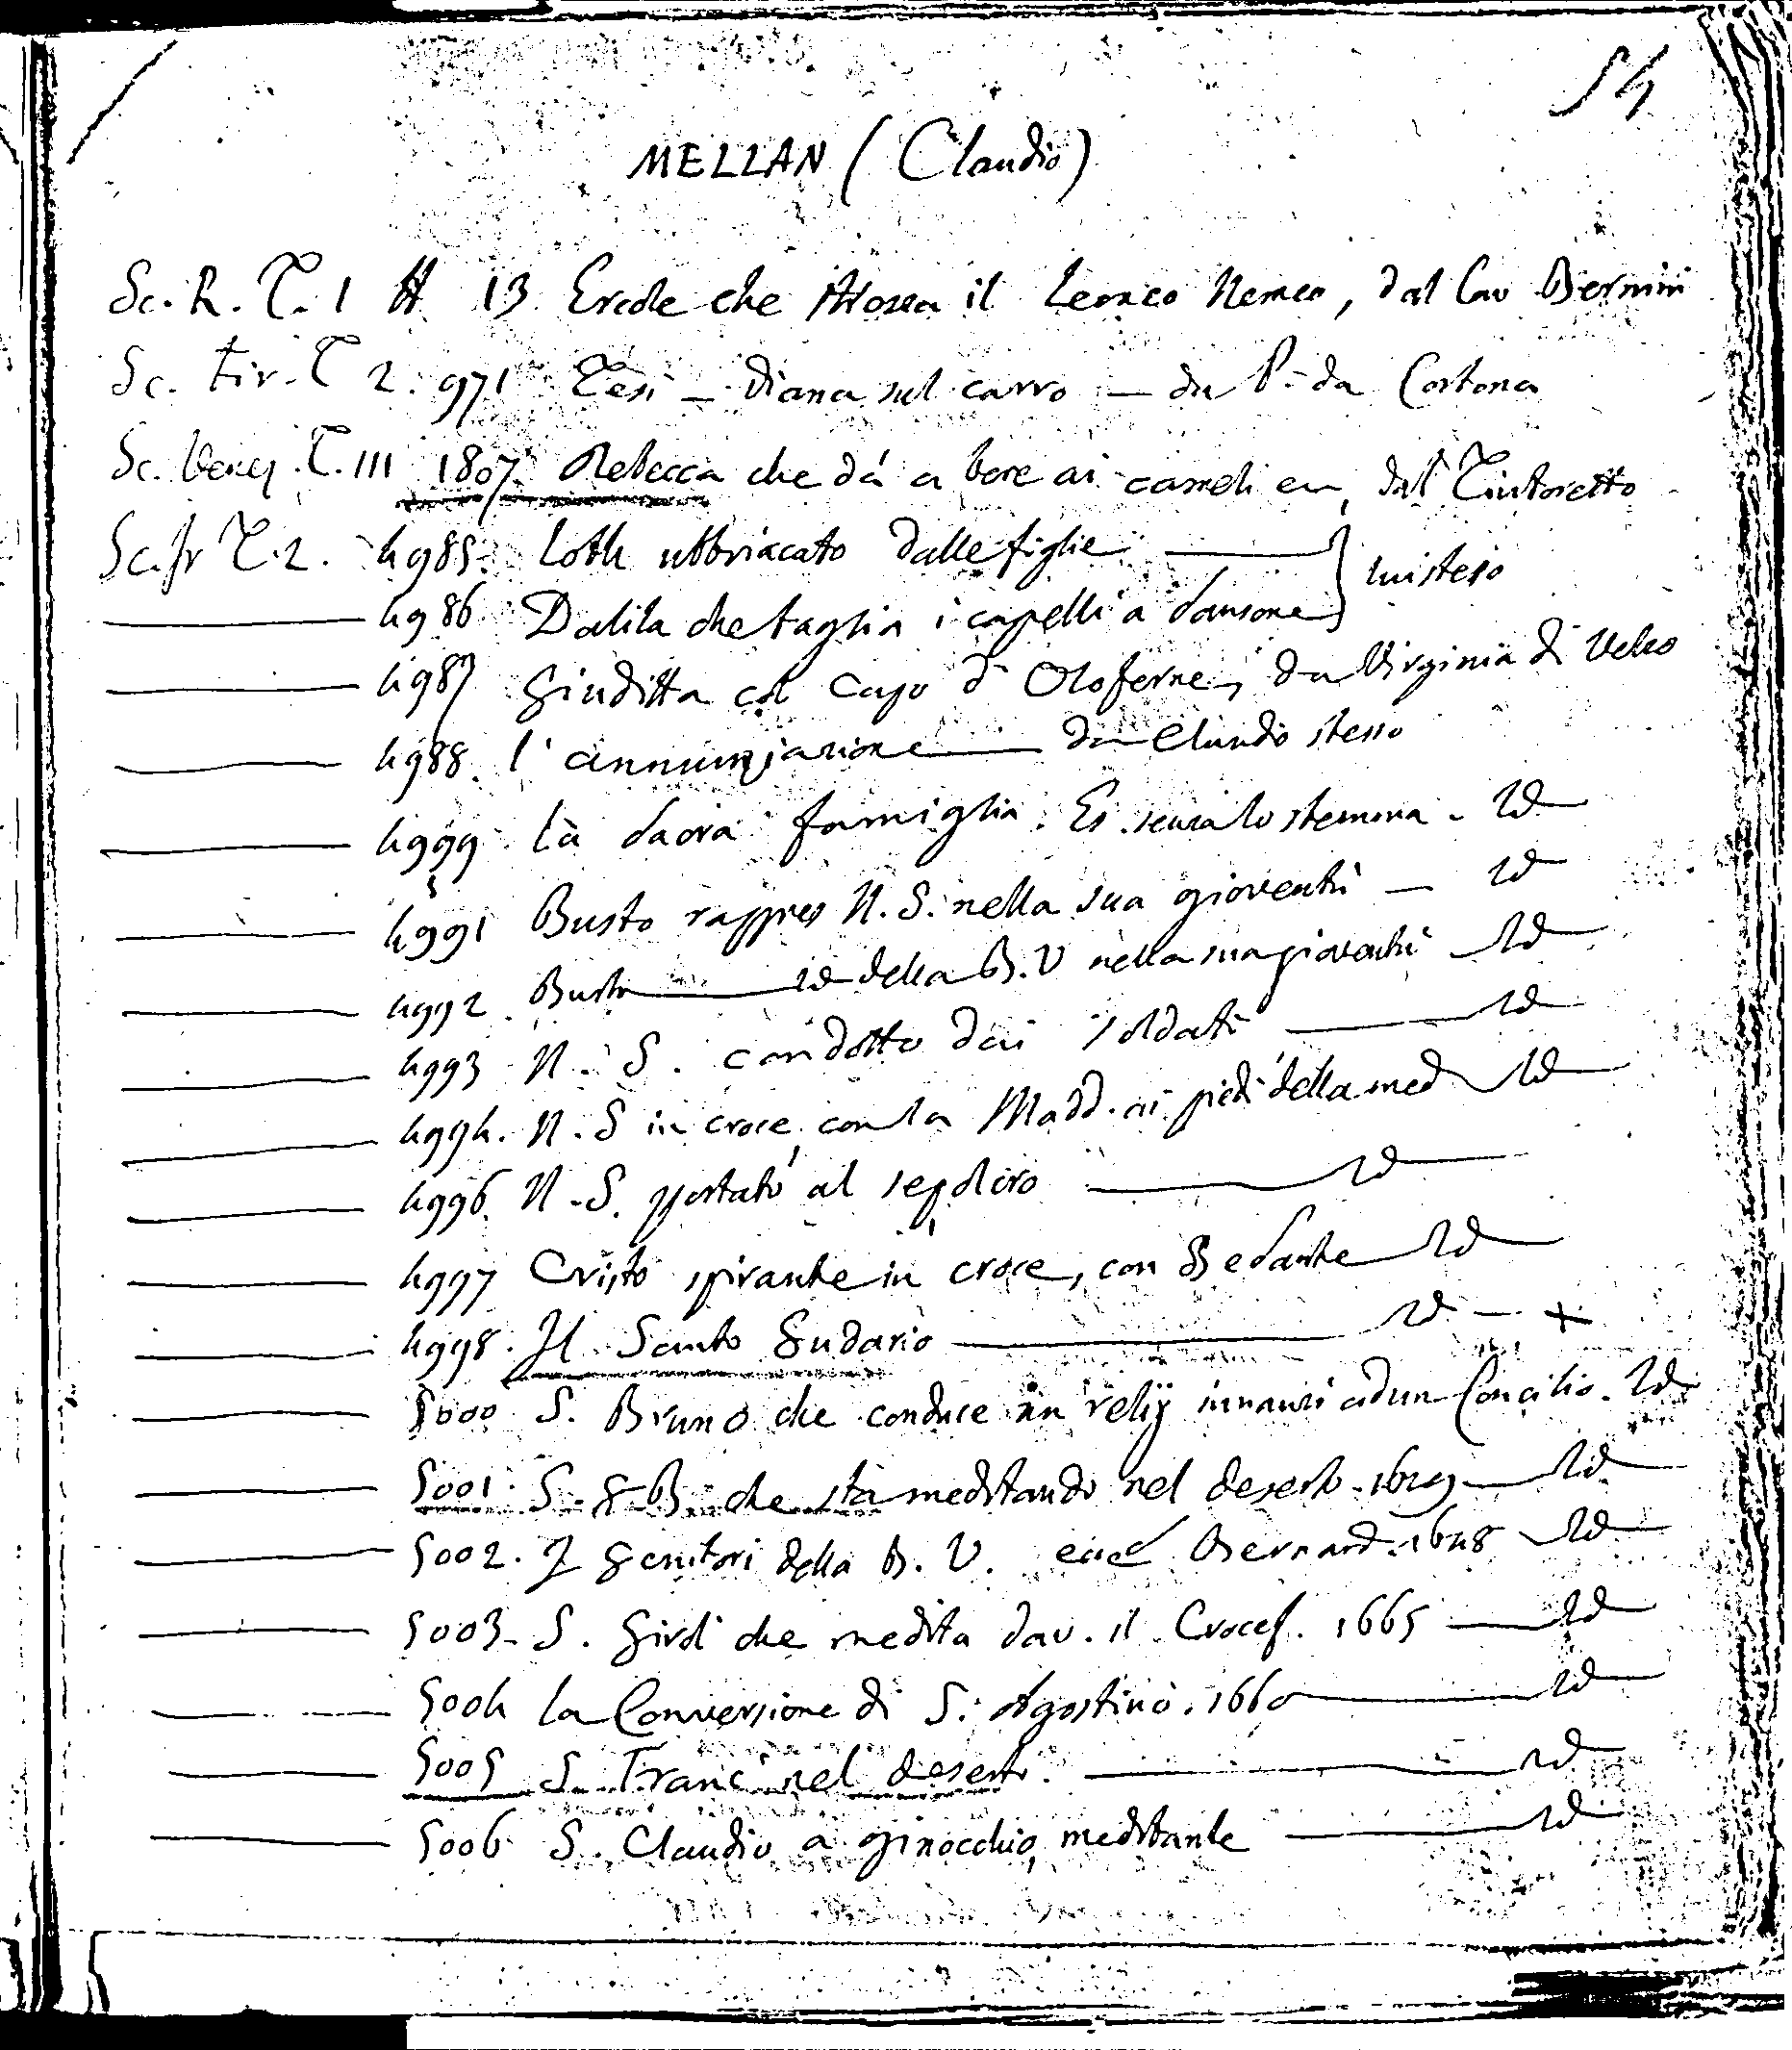 54
MELLAN (Claudio)
Sc. R. T. 1 13 Ercole che il Leoneo Nemeo, dal Cav Bernini
Sc. fir. T 2. 971 Tesi — Diana sul carro — da P. da Cortona
Sc. Venez. T. III 1807 Rebecca che dá a bere ai cameli dal Tintoretto
Sc. fr T. 2. 4985. Loth ubbriacato dalle figlie
luistesso
4986 Dalila che taglia i capelli a Sansone
4987 Giuditta col capo d' Oloferne, da Virginia di
4988. l' annunziazione — da Claudio stesso
4999 la Sacra famiglia. Es. senza lo stemma. Id
4991 Busto rappres N. S. nella sua gioventù — Id
4992 Busto — Id della B. V nella sua gioventù Id
4993 N. S. condotto dai soldati — Id
4994. N. S in croce con la Madd. ai piedi della med Id
4996 N. S. portato al sepolcro — Id
4997 Cristo spirante in croce, con Id
4998. Il Santo Sudario — Id — +
5000 S. Bruno che conduce un relig innanzi ad un Concilio. Id
5001. S. G B. che sta meditando nel deserto. 1629 — Id
5002. I Genitori della B. V. Bernard. Id
5003. S. Girol che medita dav. il Crocef. 1665 — Id
5004 la Conversione di S. Agostino. 1660 — Id
5005 S. Franc nel deserto. — Id
5006 S. Claudio a ginocchio meditante — Id